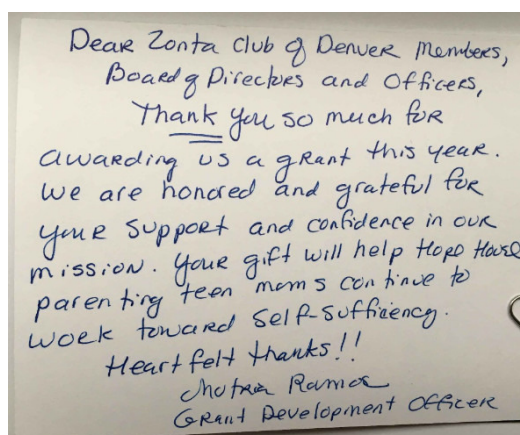 Dear Zonta Club of Denver Members,
Board of Directors and Officers,
Thank you so much for
awarding us a grant this year.
We are honored and grateful for
your support and confidence in our
mission. Your gift will help Hope House
parenting teen moms continue to
work toward self-sufficiency.
Heartfelt thanks!!
Ramos
Grant Development Officer